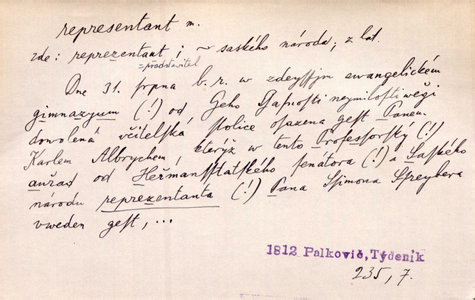 representant m.
zde: reprezentant i ~ saského národa; z lat.
= představitel
Dne 31. srpna b. r. w zdegssjm ewangelickém
gimnazyum (!) od Geho Gasnosti neymilostiwěgi
dowolená včitelská stolice osazena gest Panem
Karlem Albrychem, kterýž w tento Professorský (!)
auřad od Heřmansstatského senátora (!) a Saského
národu reprezentanta (!) Pana Ssimona Ssreybera
vweden gest, ...
1812 Palkovič, Týdeník
235, 7.